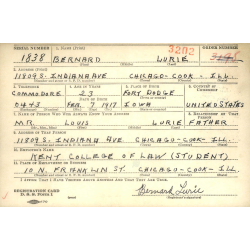 SERIAL NUMBER 1. NAME (Print) ORDER NUMBER
3202
1838 BERNARD LURIE
(First) (Middle) (Last)
2. ADDRESS (Print)
11809 S. INDIANA AVE CHICAGO-COOK-ILL.
3. TELEPHONE 4. AGE IN YEARS 5. PLACE OF BIRTH 6. COUNTRY OF CITIZENSHIP
COMMODORE 23 FORT DODGE
DATE OF BIRTH
0443 FEB. 7 1917 IOWA UNITED STATES
7. NAME OF PERSON WHO WILL ALWAYS KNOW YOUR ADDRESS 8. RELATIONSHIP OF THAT PERSON
MR. LOUIS LURIE FATHER
(Mr., Mrs., Miss) (First) (Middle) (Last)
9. ADDRESS OF THAT PERSON
11809 S. INDIANA AVE CHICAGO-COOK-ILL.
10. EMPLOYER'S NAME
KENT COLLEGE OF LAW (STUDENT)
11. PLACE OF EMPLOYMENT OR BUSINESS
10 N. FRANKLIN ST. CHICAGO-COOK-ILL.
I AFFIRM THAT I HAVE VERIFIED ABOVE ANSWERS AND THAT THEY ARE TRUE.
REGISTRATION CARD
D. S. S. FORM 1
Bernard Lurie